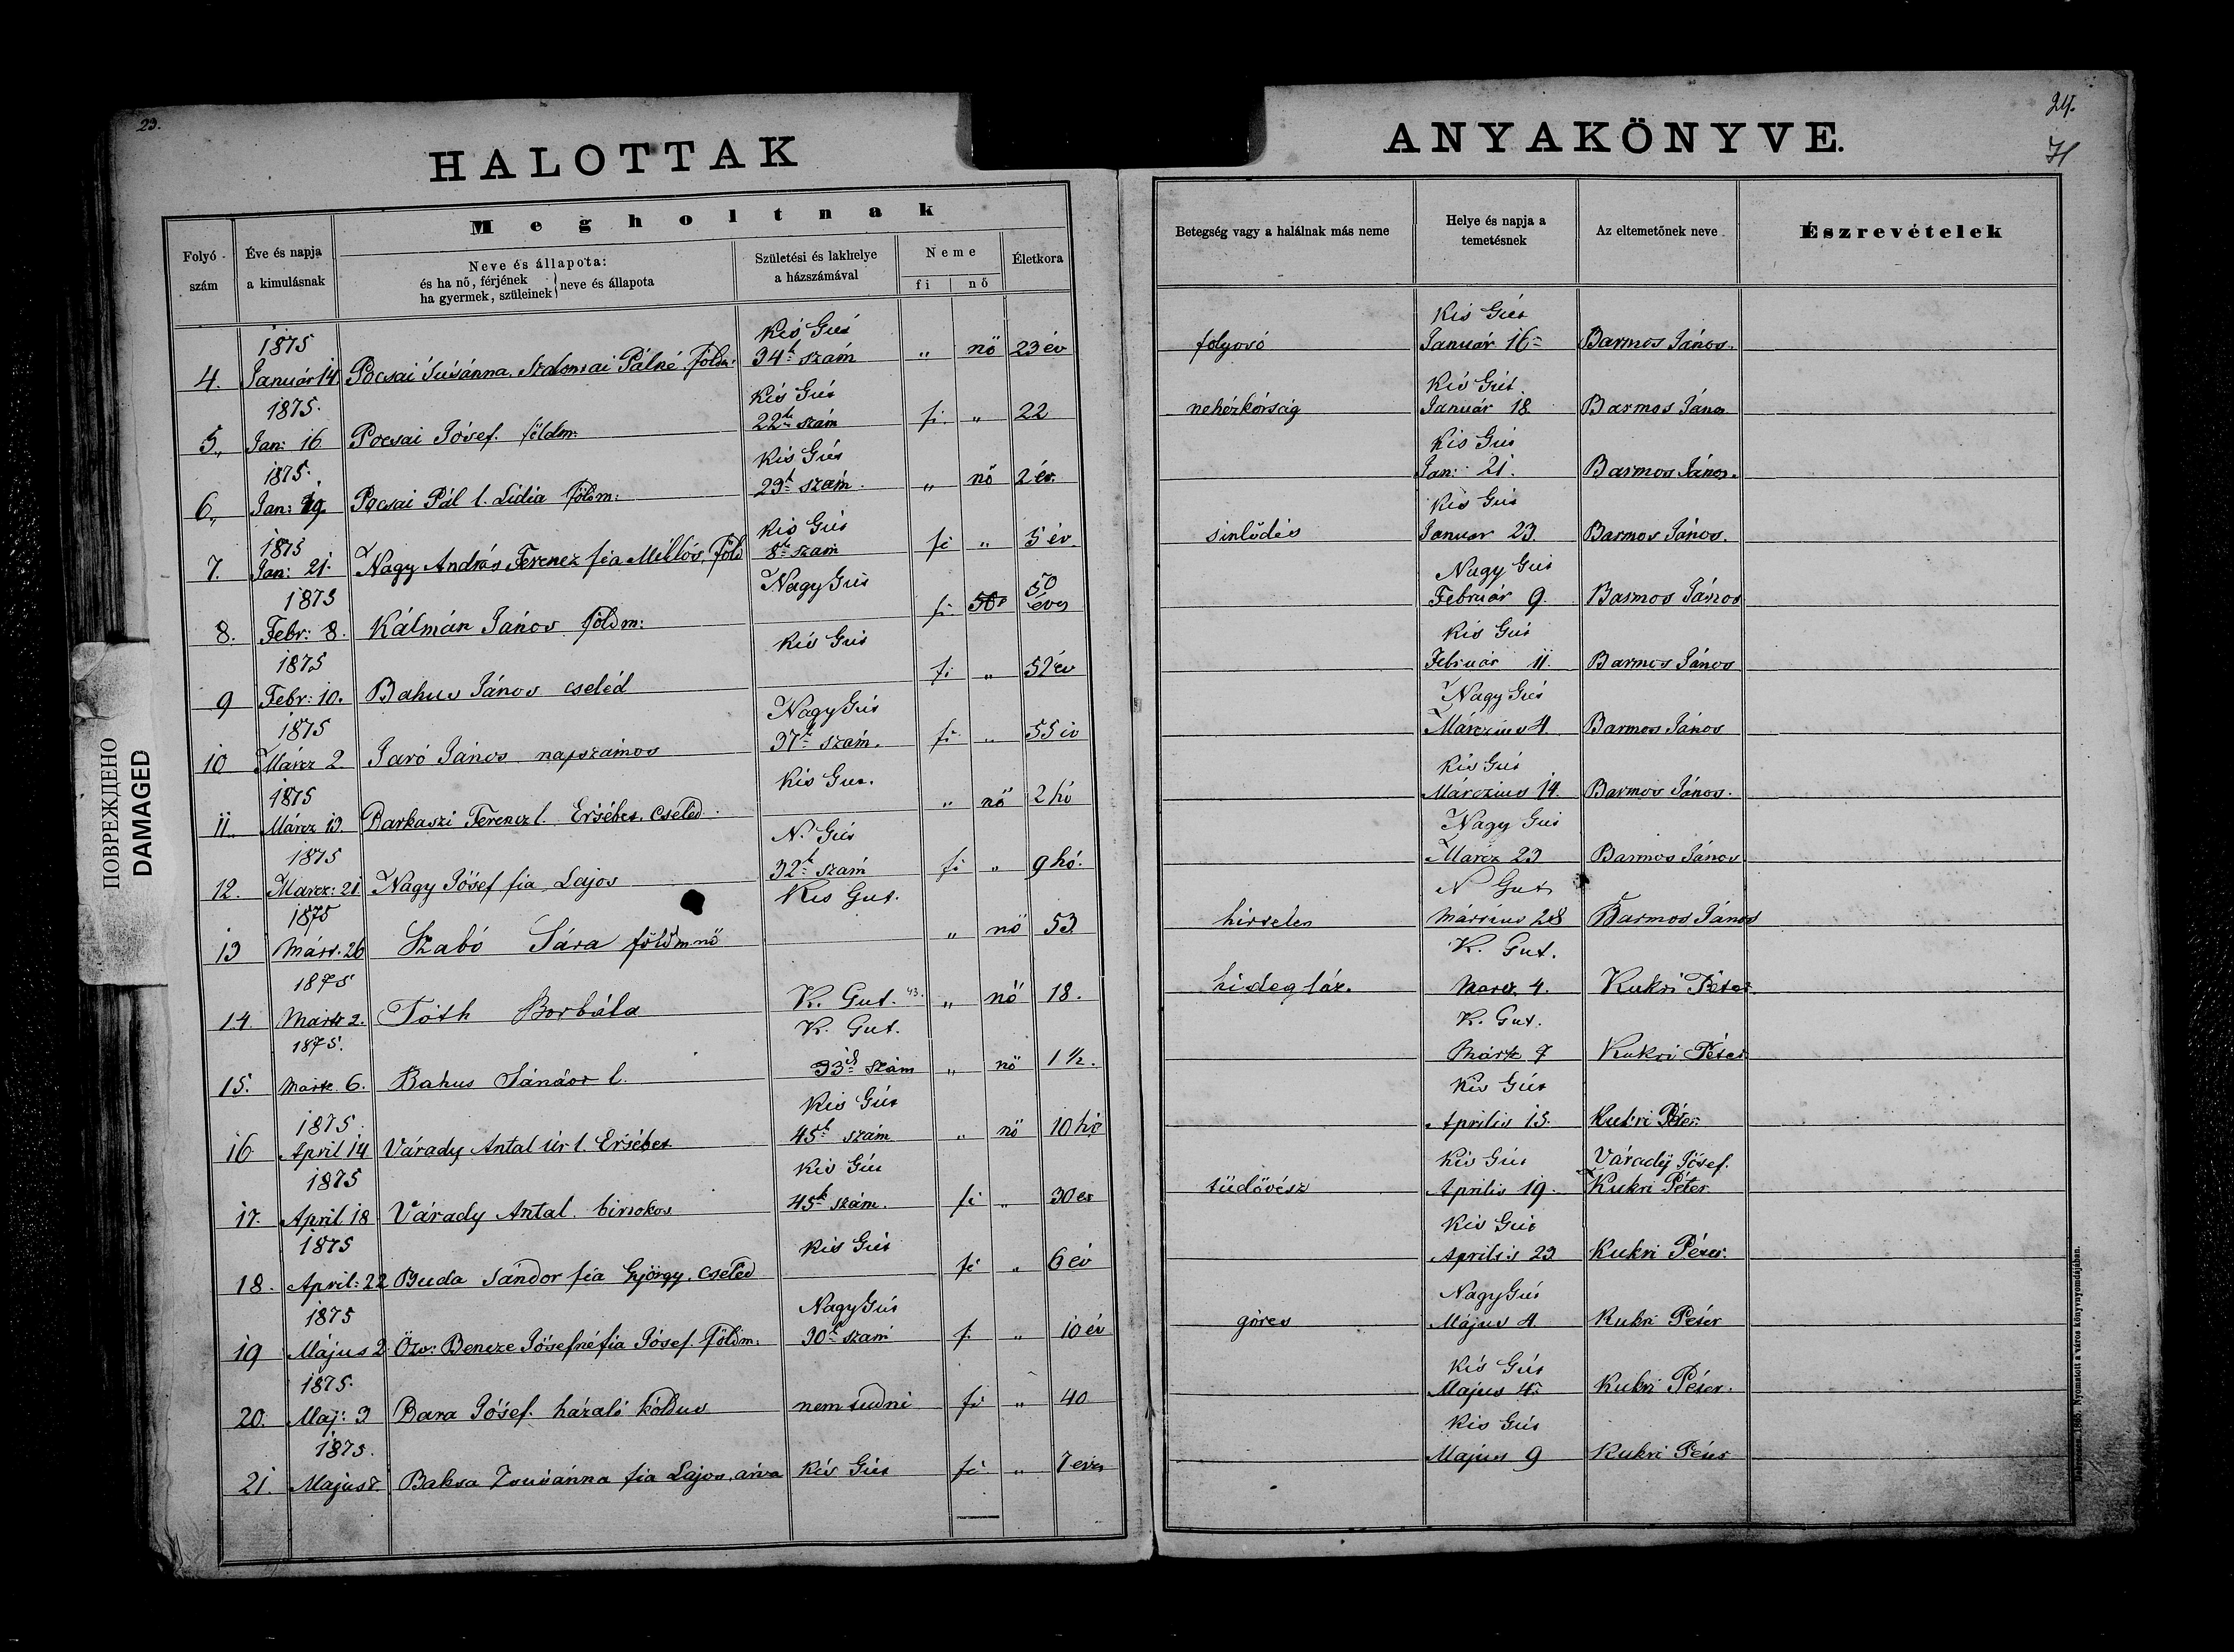 23.
HALOTTAK
Folyó-szám
Éve és napja a kimulásnak
Megholtnak
Neve és állapota:
és ha nő, férjének
ha gyermek, szüleinek } neve és állapota
Születési és lakhelye a házszámával
Neme
fi nő
Életkora
1875 Kis Gút
4. Január 14 Pocsai Súsánna. Szalonnai Pálné. földm: 34k szám „ nő 23 év
1875. Kis Gút
5., Jan: 16 Pocsai Jósef. földm: 22k szám fi. „ 22
1875. Kis Gút
6., Jan: 19 Pocsai Pál l. Lidia földm: 29k szám. „ nő 2 év.
1875 Kis Gút
7. Jan: 21. Nagy András Ferencz fia Miklós, föld 8k szám fi „ 5 év
1875 Nagy Gút 50
8. Febr: 8. Kálmán János földm: fi éves
1875 Kis Gút
9 Febr: 10. Bahus János cseléd fi „ 52 év
1875 Nagy Gút
10 Márcz 2. Jaró János napszámos 37k szám. fi „ 55 év
1875 Kis Gut.
11. Márcz 13. Barkaszi Ferencz l. Ersébet. cseléd. „ nő 2 hó
1875 N. Gút
12. Marcz: 21 Nagy Jósef fia Lajos 32k szám fi „ 9 hó.
1875 Kis Gut.
13 Márt. 26 Szabó Sára földmnő „ nő 53
1875
14. Mart 2. Tóth Borbála K. Gut. 43. „ nő 18.
1875. K. Gut.
15. Mart. 6. Bahus l. 33 szám „ nő 1 ½.
1875 Kis Gút
16. April 14 Várady Antal úr l. Ersébet 45k szám „ nő 10 hó
1875 Kis Gút
17. April 18 Várady Antal. birtokos 45k szám. fi „ 30 év
1875 Kis Gút
18. April: 22 Buda Sándor fia György. cseléd fi „ 6 év
1875 Nagy Gút
19 Május 2 Özv: Bencze Jósefné fia Jósef. földm: 30k szám f. „ 10 év
1875.
20. Maj: 3 Bara Jósef. házaló koldus nem tudni fi „ 40
1875.
21. Május 8. Baksa Zsusánna fia Lajos, árva Kis Gút fi „ 7 éves
24.
ANYAKÖNYVE.
Betegség vagy a halálnak más neme
Helye és napja a temetésnek
Az eltemetőnek neve
Észrevételek
Kis Gút
folyosó Január 16 Barmos János.
Kis Gút
nehézkórság Január 18. Barmos János
Kis Gút
Jan: 21. Barmos János.
Kis Gút
sinlődés Januar 23. Barmos János.
Nagy Gút
Február 9. Barmos János
Kis Gút
Február 11. Barmos János
Nagy Gút
Márczius 4 Barmos János
Kis Gút
Márczius 14. Barmos János.
Nagy Gút
Marcz 23 Barmos János
N Gut
hirtelen Mártius 28 Barmos János
K. Gut.
hideg láz. Marcz 4. Kukri Péter
K. Gut.
Mart 7 Kukri Péter
Kis Gút
Aprilis 15. Kukri Péter
Kis Gút Várady Jósef.
tüdővész Aprilis 19. Kukri Péter
Kis Gút
Aprilis 23 Kukri Péter.
Nagy Gút
görcs Május 4. Kukri Péter
Kis Gút
Május 4. Kukri Péter.
Kis Gút
Május 9 Kukri Péter
Nyomatott a város könyvnyomdájában.
ПОВРЕЖДЕНО
DAMAGED